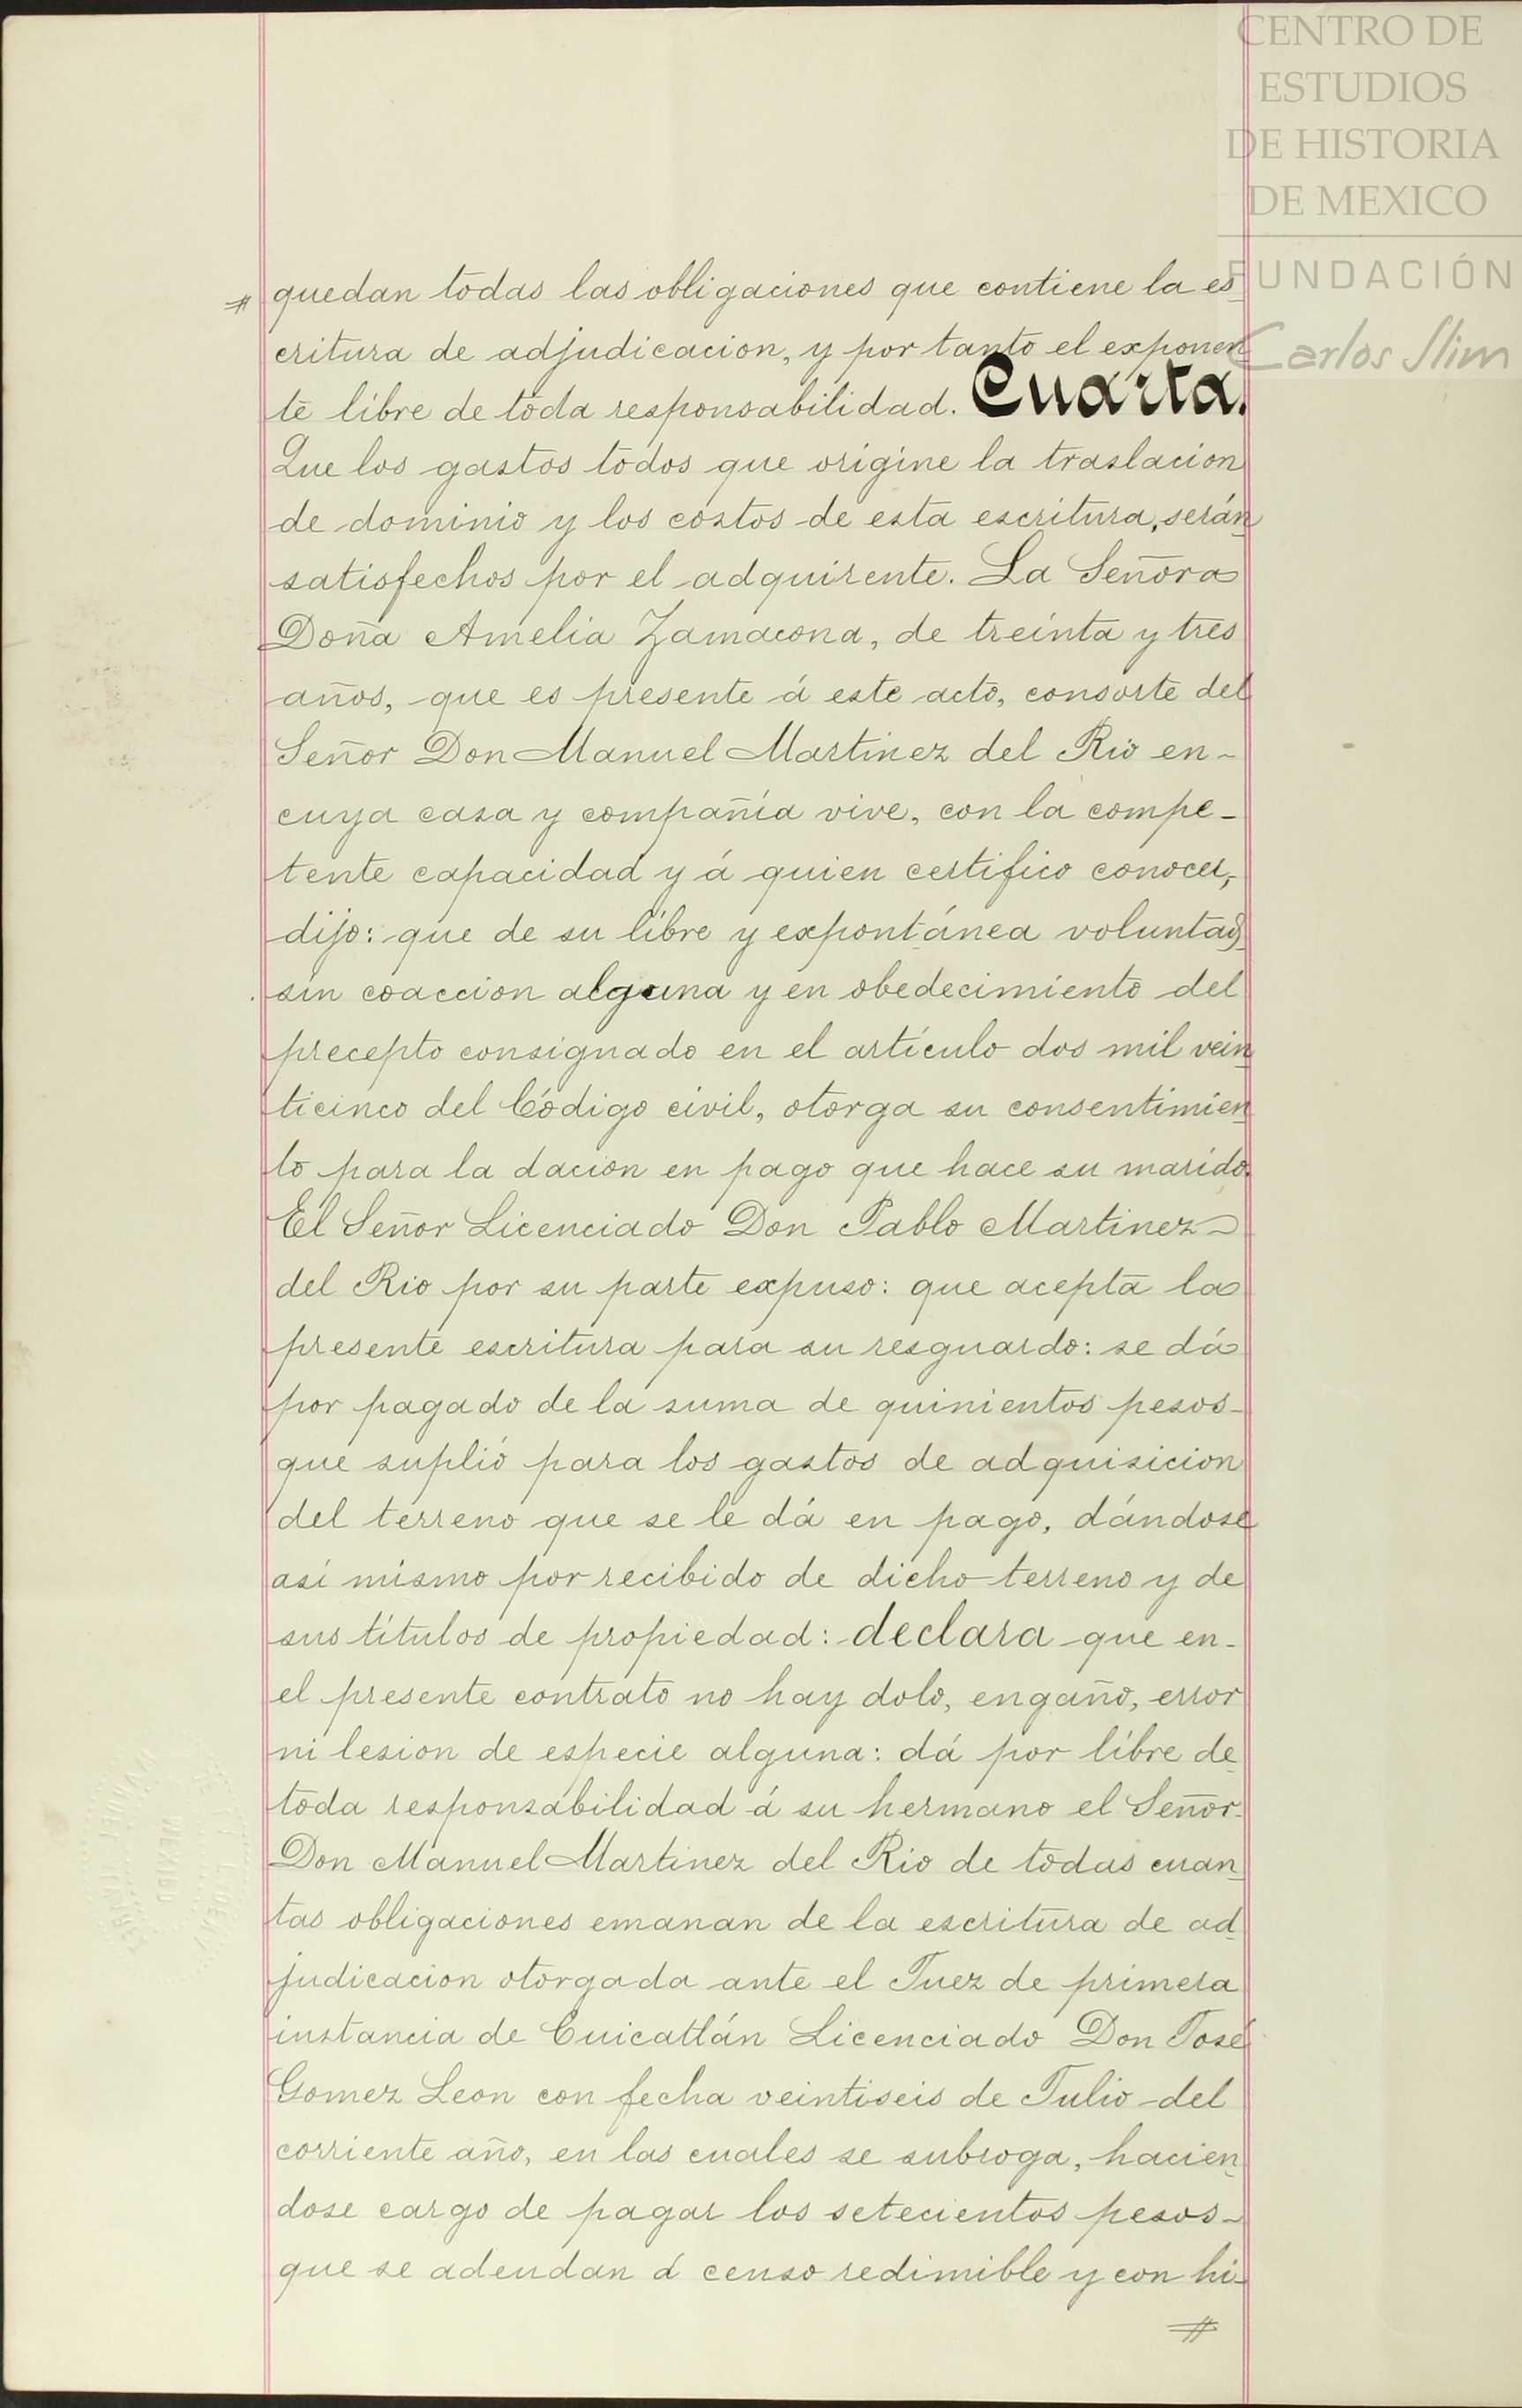 CENTRO DE
ESTUDIOS
DE HISTORIA
DE MEXICO
FUNDACIÓN
Carlos Slim
quedan todas las obligaciones que contiene la es
critura de adjudicacion, y por tanto el exponen
te libre de toda responsabilidad. Cuarta.
Que los gastos todos que origine la traslacion
de dominio y los costos de esta escritura, serán
satisfechos por el adquirente. La Señora
Doña Amelia Zamacona, de treinta y tres
años, que es presente á este acto, consorte del
Señor Don Manuel Martinez del Rio en-
cuya casa y compañía vive, con la compe-
tente capacidad y á quien certifico conocer,
dijo: que de su libre y expontánea voluntad,
sin coaccion alguna y en obedecimiento del
precepto consignado en el artículo dos mil vein
ticinco del Código civil, otorga su consentimien
to para la dacion en pago que hace su marido.
El Señor Licenciado Don Pablo Martinez
del Rio por su parte expuso: que acepta la
presente escritura para su resguardo: se dá
por pagado de la suma de quinientos pesos-
que suplió para los gastos de adquisicion
del terreno que se le dá en pago, dándose
asi mismo por recibido de dicho terreno y de
sus títulos de propiedad: declara que en-
el presente contrato no hay dolo, engaño, error
ni lesion de especie alguna: dá por libre de
toda responsabilidad á su hermano el Señor
Don Manuel Martinez del Rio de todas cuan
tas obligaciones emanan de la escritura de ad
judicacion otorgada ante el Juez de primera
instancia de Cuicatlán Licenciado Don José
Gomez Leon con fecha veintiseis de Julio del
corriente año, en las cuales se subroga, hacien
dose cargo de pagar los setecientos pesos-
que se adeudan á censo redimible y con hi-